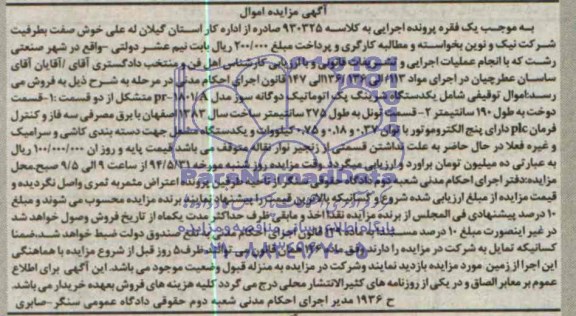 آگهی مزایده اموال
به موجب یک فقره پرونده اجرایی به کلاسه ۹۳۰۳۲۵ صادره از اداره کار استان گیلان له علی خوش صفت بطرفیت
شرکت نیک و نوین بخواسته و مطالبه کارگری و پرداخت مبلغ ۲۰۰/۰۰۰ ریال بابت نیم عشر دولتی -واقع در شهر صنعتی
رشت که با انجام عملیات اجرایی و تشریفات قانونی و با ارزیابی کارشناس اهل فن و منتخب دادگستری آقای /آقایان آقای
ساسان عطرچیان در اجرای مواد ۱۱۳ الی ۱۳۶ الی ۱۴۷ قانون اجرای احکام مدنی در مرحله به شرح ذیل به فروش می
رسد:اموال توقیفی شامل یکدستگاه شرینک پک اتوماتیک دوگانه سوز مدل pr-۱۸۰۱/A متشکل از دو قسمت :۱-قسمت
دوخت به طول ۱۹۰ سانتیمتر ۲-قسمت تونل به طول ۲۷۵ سانتیمتر ساخت سال ۱۳۸۳ اصفهان با برق مصرفی سه فاز و کنترل
فرمان plc دارای پنج الکتروموتور با توان ۰.۳۷ و ۰.۱۸ و ۰.۷۵ کیلووات و یکدستگاه جهت دسته بندی کاشی و سرامیک
و غیره فعلا در حال حاضر به علت نداشتن قسمتی از زنجیر نوار نقاله متوقف می باشد قیمت پایه و روز ان ۱۰۰/۰۰۰/۰۰۰ ریال
به عبارتی ده میلیون تومان براورد و ارزیابی میگردد وقت مزایده روز شنبه مورخه ۹۴/۵/۳۱ از ساعت ۹ الی ۹/۵ صبح.محل
مزایده:دفتر اجرای احکام مدنی شعبه دوم دادگاه حقوقی سنگر از ناحیه طرفین پرونده اعتراض مثمربه ثمری واصل نگردیده و
قیمت مزایده از مبلغ ارزیابی شده شروع و کسانیکه بالاترین قیمت را پیشنهاد نمایند برنده مزایده محسوب می شوند و مبلغ
۱۰ درصد پیشنهادی فی المجلس از برنده مزایده نقدا اخذ و مابقی ظرف حداکثر مدت یکماه از تاریخ فروش وصول خواهد شد
در غیر اینصورت مبلغ ۱۰ درصد قانون اجرای احکام صندوق دولت ضبط خواهد شد.ضمنا
کسانیکه تمایل به شرکت در مزایده را دارند ظرف ۵ روز قبل از شروع مزایده با هماهنگی
این اجرا از زمین مورد مزایده بازدید نمایند و شرکت در مزایده به منزله قبول وضعیت موجود می باشد. این آگهی برای اطلاع
عموم بر معابر الصاق و در یکی از روزنامه های کثیرالانتشار محلی درج می گردد کلیه هزینه های فروش بعهده خریدار می باشد.
ح ۱۹۳۶ مدیر اجرای احکام مدنی شعبه دوم حقوقی دادگاه عمومی سنگر-صابری
ParsNamadData